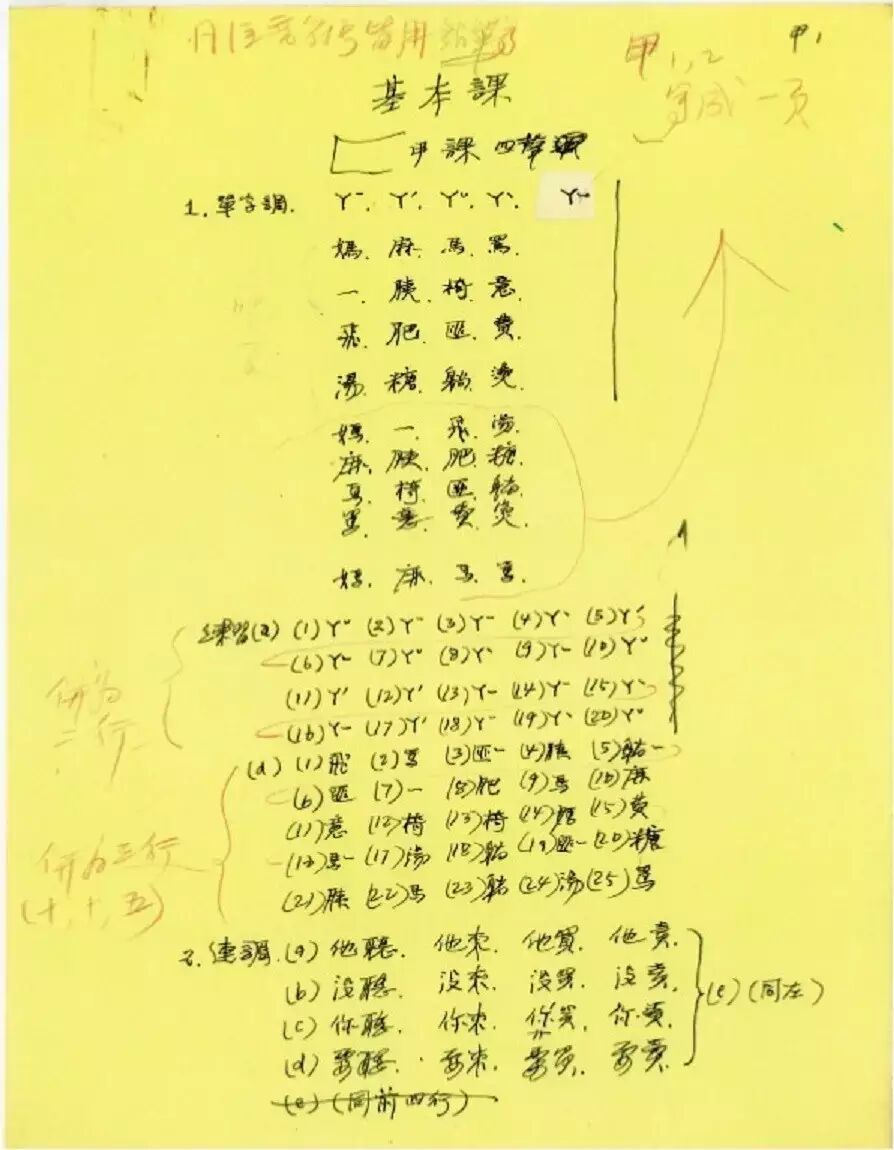 注音符号皆用
甲1,2
写成一页
甲1
基本課
甲課 四聲調
1. 單字調. ㄚˉ. ㄚˊ. ㄚˇ. ㄚˋ.
媽. 麻. 馬. 罵.
一. 胰. 椅. 意.
飛. 肥. 匪. 費.
湯. 糖. 躺. 燙.
媽. 一. 飛. 湯.
麻. 胰. 肥. 糖.
馬. 椅. 匪. 躺.
罵. 意. 費. 燙.
媽. 麻. 馬. 罵.
練習(a) (1)ㄚˇ (2)ㄚˉ (3)ㄚˉ (4)ㄚˋ (5)ㄚˊ
(6)ㄚˉ (7)ㄚˇ (8)ㄚˋ (9)ㄚˉ (10)ㄚˇ
(11)ㄚˊ (12)ㄚˊ (13)ㄚˉ (14)ㄚˉ (15)ㄚˋ
(16)ㄚˉ (17)ㄚˊ (18)ㄚˉ (19)ㄚˋ (20)ㄚˇ
併为
二行
(d) (1)飛 (2)罵 (3)匪 (4)胰 (5)躺
(6)匪 (7)一 (8)肥 (9)馬 (10)麻
(11)意 (12)椅 (13)椅 (14) (15)費
(16)馬 (17)湯 (18)躺 (19)匪 (20)糖
(21)胰 (22)馬 (23)躺 (24)湯 (25)罵
併为三行
(十,十,五)
2. 連調. (a) 他聽. 他來. 他買. 他賣.
(b) 没聽. 没來. 没買. 没賣.
(c) 你聽. 你來. 你買. 你賣.
(d) 要聽. 要來. 要買. 要賣.
(e) (同左)
(e) (同前四行)